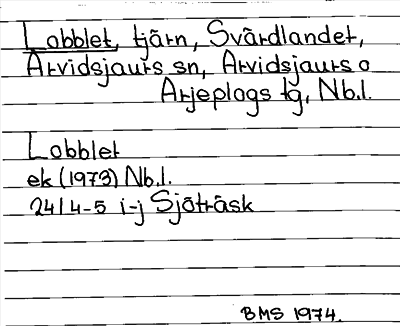 Lobblet, tjärn, Svärdlandet,
Arvidsjaurs sn, Arvidsjaurs o
Arjeplogs tg, Nb.l.
Lobblet
ek (1973) Nb.l.
24I 4-5 i-j Sjöträsk
BMS 1974.